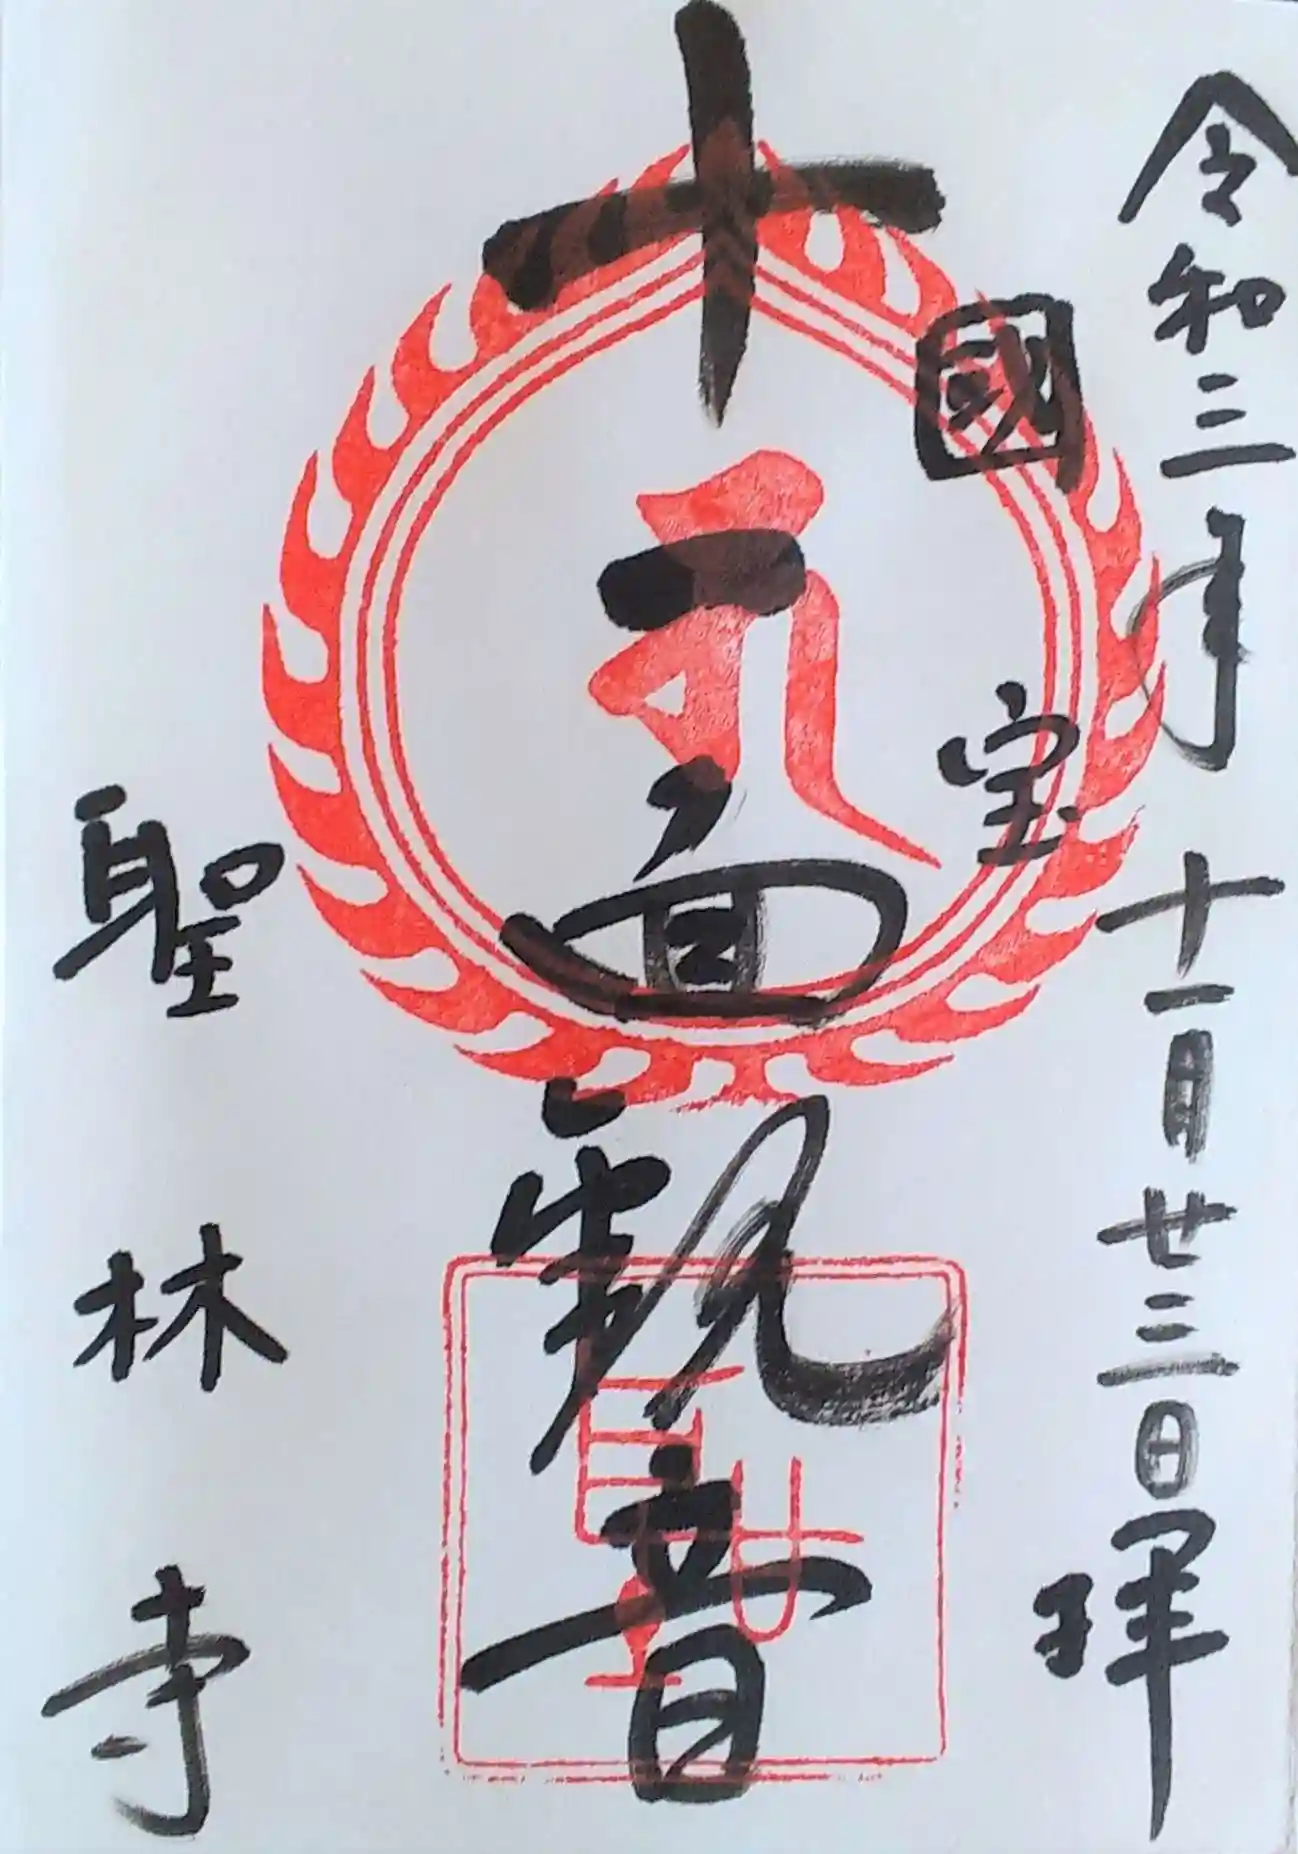 令和三年十一月廿三日 拝
國宝
十一面観音
聖林寺